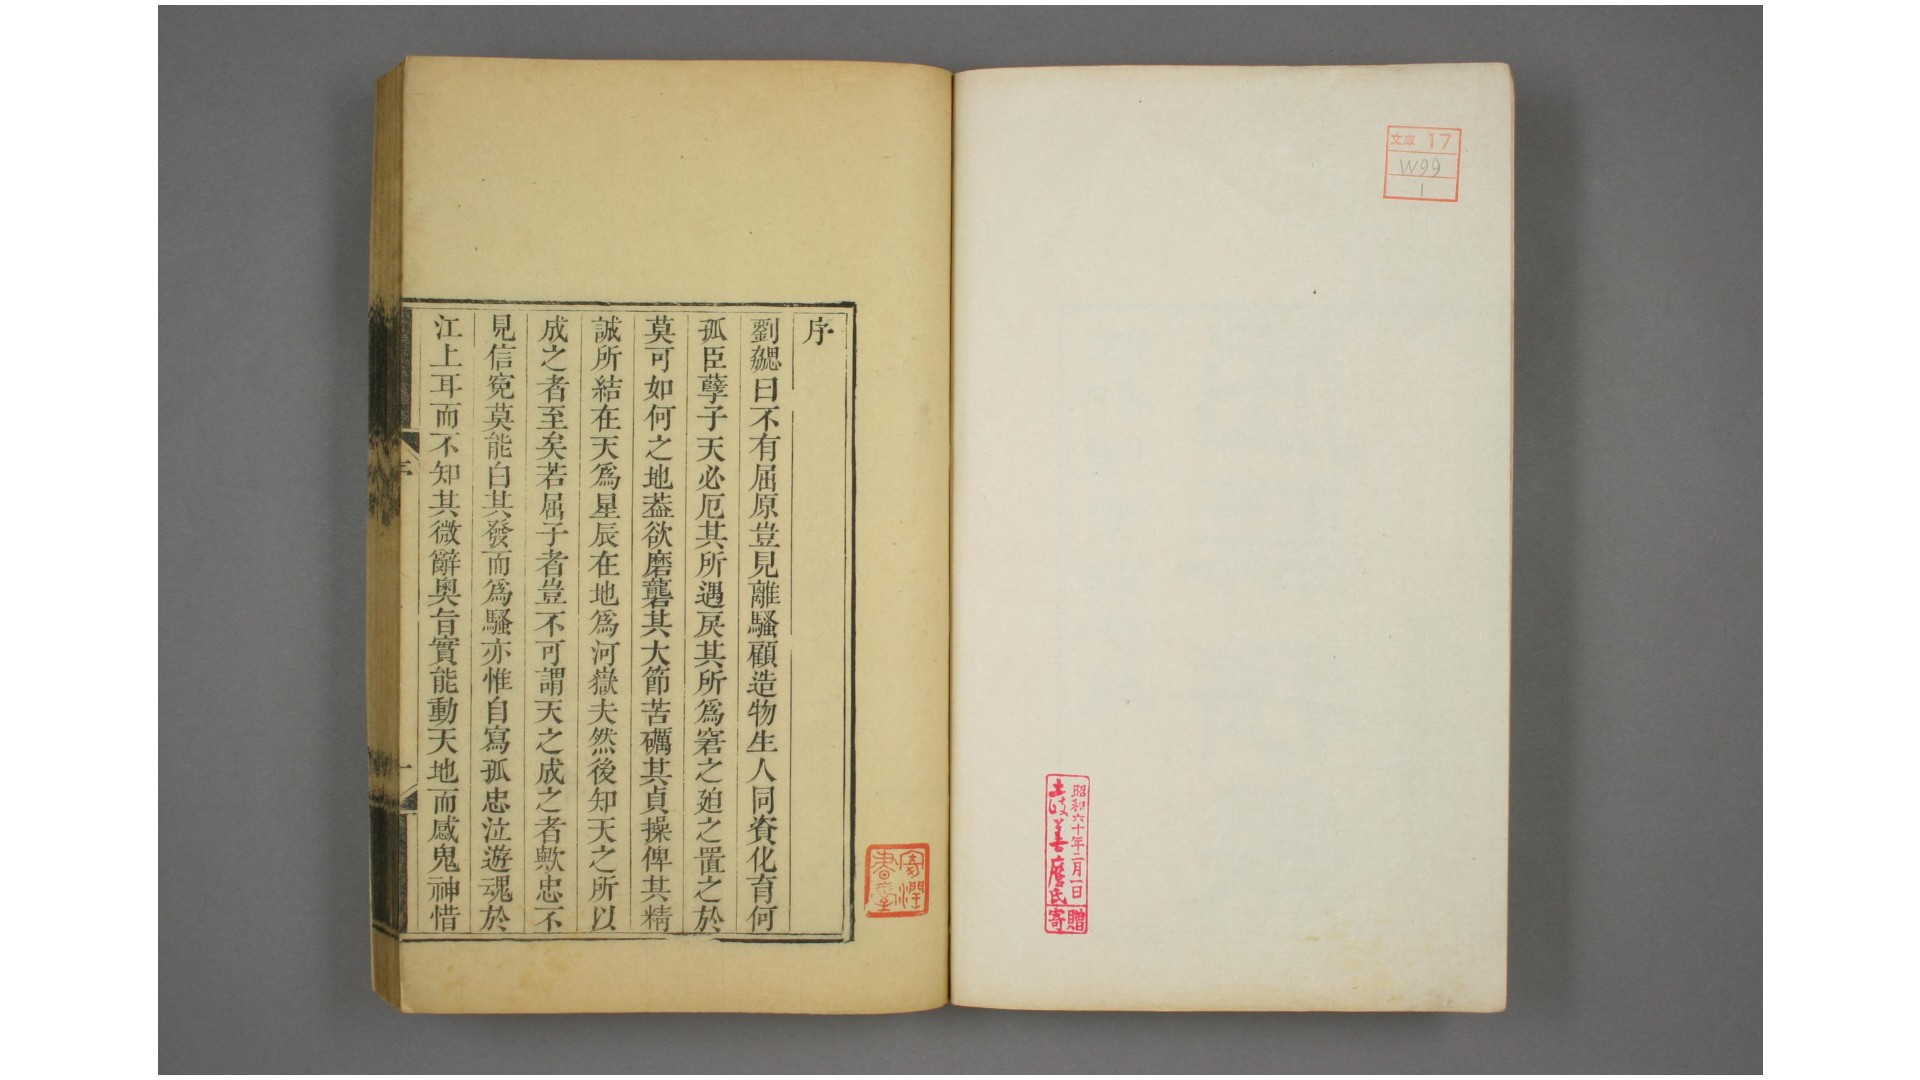 文庫 17
W99
1
昭和六十年二月一日
土岐善麿氏
寄贈
序
劉勰曰不有屈原豈見離騷顧造物生人同資化育何
孤臣孽子天必厄其所遇戾其所爲窘之廹之置之於
莫可如何之地葢欲磨礱其大節苦礪其貞操俾其精
誠所結在天爲星辰在地爲河嶽夫然後知天之所以
成之者至矣若屈子者豈不可謂天之成之者歟忠不
見信寃莫能白其發而爲騷亦惟自寫孤忠泣遊魂於
江上耳而不知其微辭奧旨實能動天地而感鬼神惜